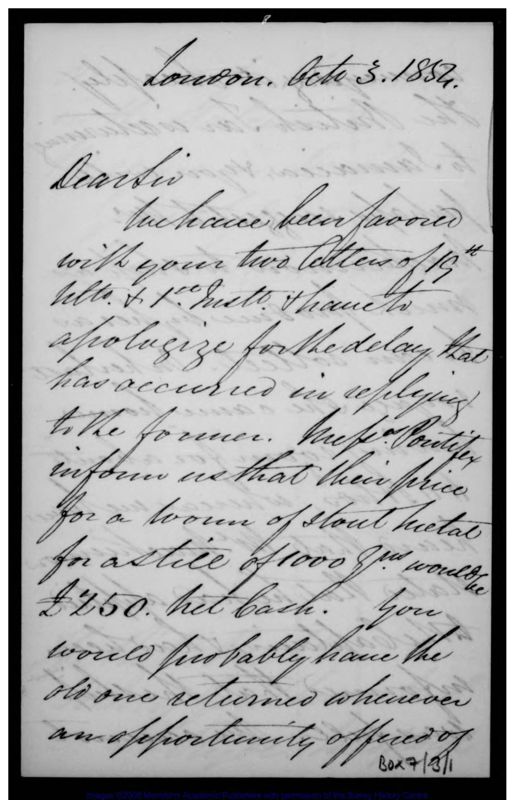 London. Octo 3. 1854.
Dear Sir
We have been favored
with your two letters of 19th
Ulto. & 1st Insto. & have to
apologize for the delay that
has occurred in replying
to the former. Messrs. Pontifex
inform us that their price
for a worm of stout metal
for a still of 1000 Gns would be
£250. net Cash. You
would probably have the
old one returned whenever
an opportunity offered of
BOX 7/3/1